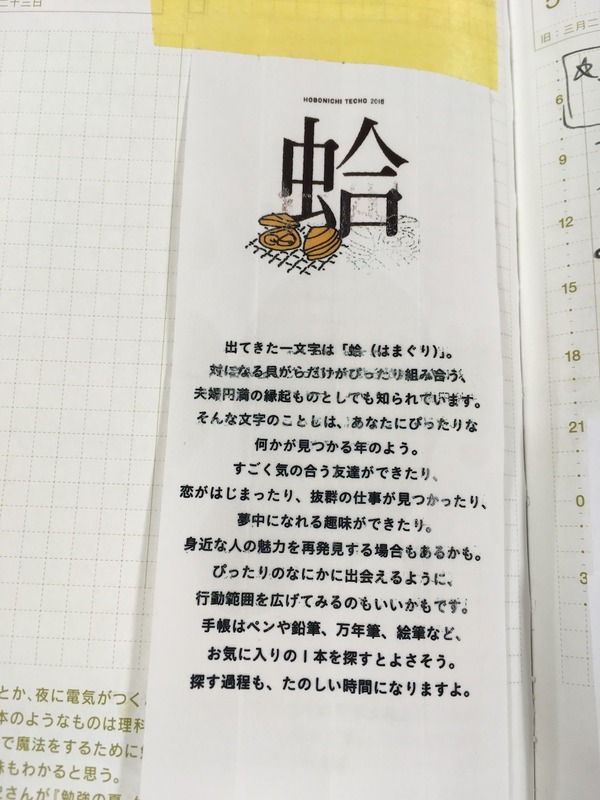 二十三日
HOBONICHI TECHO 2018
蛤
出てきた一文字は「蛤（はまぐり）」。
対になる貝がらだけがぴったり組み合う、
夫婦円満の縁起ものとしても知られています。
そんな文字のことしは、あなたにぴったりな
何かが見つかる年のよう。
すごく気の合う友達ができたり、
恋がはじまったり、抜群の仕事が見つかったり、
夢中になれる趣味ができたり。
身近な人の魅力を再発見する場合もあるかも。
ぴったりのなにかに出会えるように、
行動範囲を広げてみるのもいいかもです。
手帳はペンや鉛筆、万年筆、絵筆など、
お気に入りの1本を探すとよさそう。
探す過程も、たのしい時間になりますよ。
とか、夜に電気がつく
本のようなものは理科
で魔法をするために
味もわかると思う。
さんが『勉強の夏
5
旧：三月二
6
9
12
15
18
21
0
3